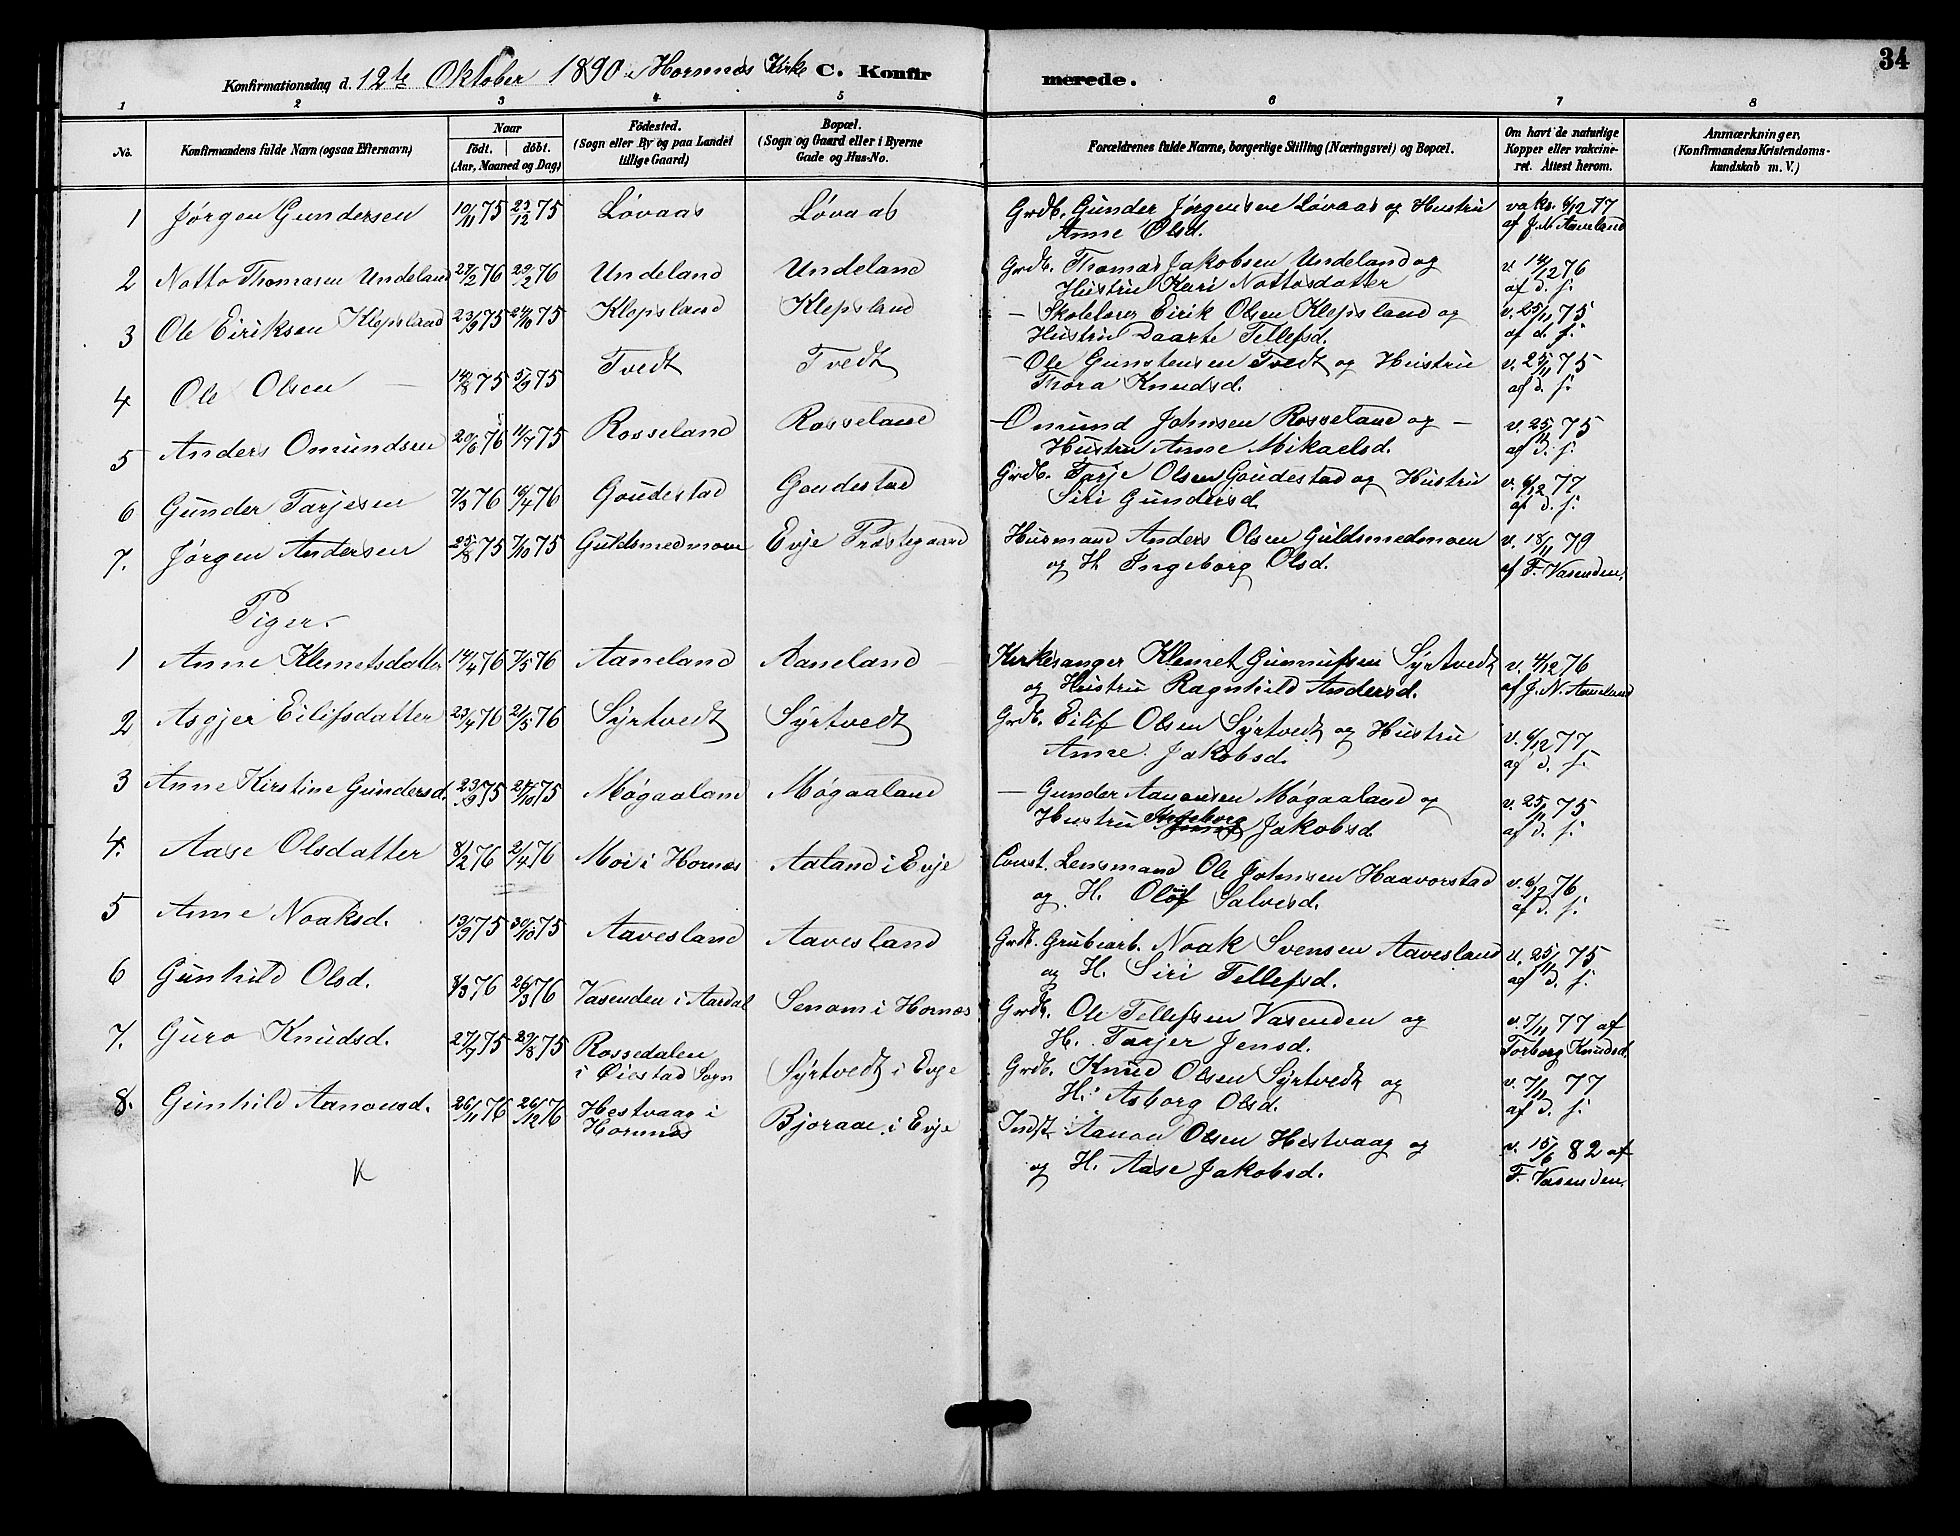 34
Konfirmationsdag d. 12te Oktober 1890 i Hornnes Kirke C. Konfirmerede.
1 2 3 4 5 6 7 8
No. Konfirmandens fulde Navn (ogsaa Efternavn) Naar födt. döbt. (Aar, Maaned og Dag) Födested. (Sogn eller By og paa Landet tillige Gaard) Bopæl. (Sogn og Gaard eller i Byerne Gade og Hus-No. Forældrenes fulde Navne, borgerlige Stilling (Næringsvei) og Bopæl. Om havt de naturlige Kopper eller vakcineret. Attest herom. Anmærkninger, (Konfirmandens Kristendomskundskab m. V.)
1 Jørgen Gundersen 10/11 75 23/12 75 Løvaas Løvaas Grdb. Gunder Jørgensen Løvaas og Hustru vaks. 6/12 77
Anne Olsd. af J. N. Aaneland
2 Notto Thomasen Undeland 27/2 76 29/2 76 Undeland Undeland Grdb. Thomas Jakobsen Undeland og v. 14/12 76
Hustru Kari Nottosdatter af d. s.
3 Ole Eiriksen Klepsland 23/9 75 24/10 75 Klepsland Klepsland — Skolelærer Eirik Olsen Klepsland og v. 25/11 75
Hustru Daarte Tellefsd. af d. s.
4 Ole Olsen — 14/8 75 5/9 75 Tvedt Tvedt — Ole Gunstensen Tvedt og Hustru v. 25/11 75
Thora Knudsd. af d. s.
5 Anders Omundsen 20/6 76 11/7 75 Rosseland Rosseland — Omund Johnsen Rosseland og — v. 25/11 75
Hustru Anne Mikaelsd. af d. s.
6 Gunder Tarjesen 7/3 76 14/4 76 Goudestad Goudestad Grdb. Tarje Olsen Goudestad og Hustru v. 6/12 77
Siri Gundersd. af d. s.
7. Jørgen Andersen 25/8 75 7/10 75 Guldsmedmoen Evje Præstegaard Husmand Anders Olsen Guldsmedmoen v. 18/11 79
og H. Ingeborg Olsd. af F. Vasenden.
Piger.
1 Anne Klemetsdatter 14/4 76 7/5 76 Aaneland Aaneland — Kirkesanger Klemet Gunnufsen Syrtvedt v. 4/12 76
og Hustru Ragnhild Andersd. af J. N. Aaneland
2 Asgjer Eilifsdatter 23/4 76 21/5 76 Syrtvedt Syrtvedt Grdb. Eilif Olsen Syrtvedt og Hustru v. 6/12 77
Anne Jakobsd. af d. s.
3 Anne Kirstine Gundersd. 23/9 75 24/10 75 Møgaaland Møgaaland — Gunder Aanonsen Møgaaland og v. 25/11 75
Hustru Ingeborg Jakobsd af d. s.
4. Aase Olsdatter 8/2 76 2/4 76 Moi i Hornes Aaland i Evje Const. Lensmand Ole Johnsen Haavorstad v. 6/12 76
og H. Oløf Salvesd. af d. s.
5 Anne Noaksd. 13/9 75 30/10 75 Aavesland Aavesland Grdb. Grubearb. Noak Svensen Aavesland v. 25/11 75
og H. Siri Tellefsd. af d. s.
6 Gunhild Olsd. 8/3 76 26/3 76 Vasenden i Aardal Senom i Hornes Grdb. Ole Tellefsen Vasenden og v. 7/11 77 af
H. Tarjer Jensd. Torborg Knudsd.
7. Guro Knudsd. 27/7 75 29/8 75 Rossedalen i Øiestad Sogn Syrtvedt i Evje Grdb. Knud Olsen Syrtvedt og v. 7/11 77
H. Asborg Olsd. af d. s.
8. Gunhild Aanonsd. 26/11 76 26/12 76 Hestvaag i Hornnes Bjoraae i Evje Indst. Aanon Olsen Hestvaag og v. 15/6 82 af
og H. Aase Jakobsd. F. Vasenden.
K